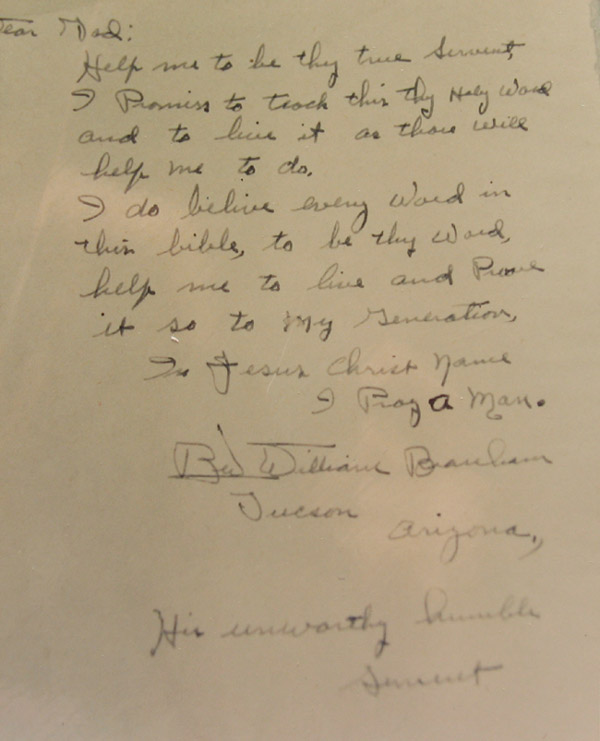 ear God:
Help me to be thy true Servent,
I Promiss to teach this thy Holy Word
and to live it as thou will
help me to do.
I do belive every Word in
this bible, to be thy Word,
help me to live and Prove
it so to My Generation,
In Jesus Christ Name
I Pray A Man.
William Branham
Tucson
Arizona,,
His unworthy humble
Servent